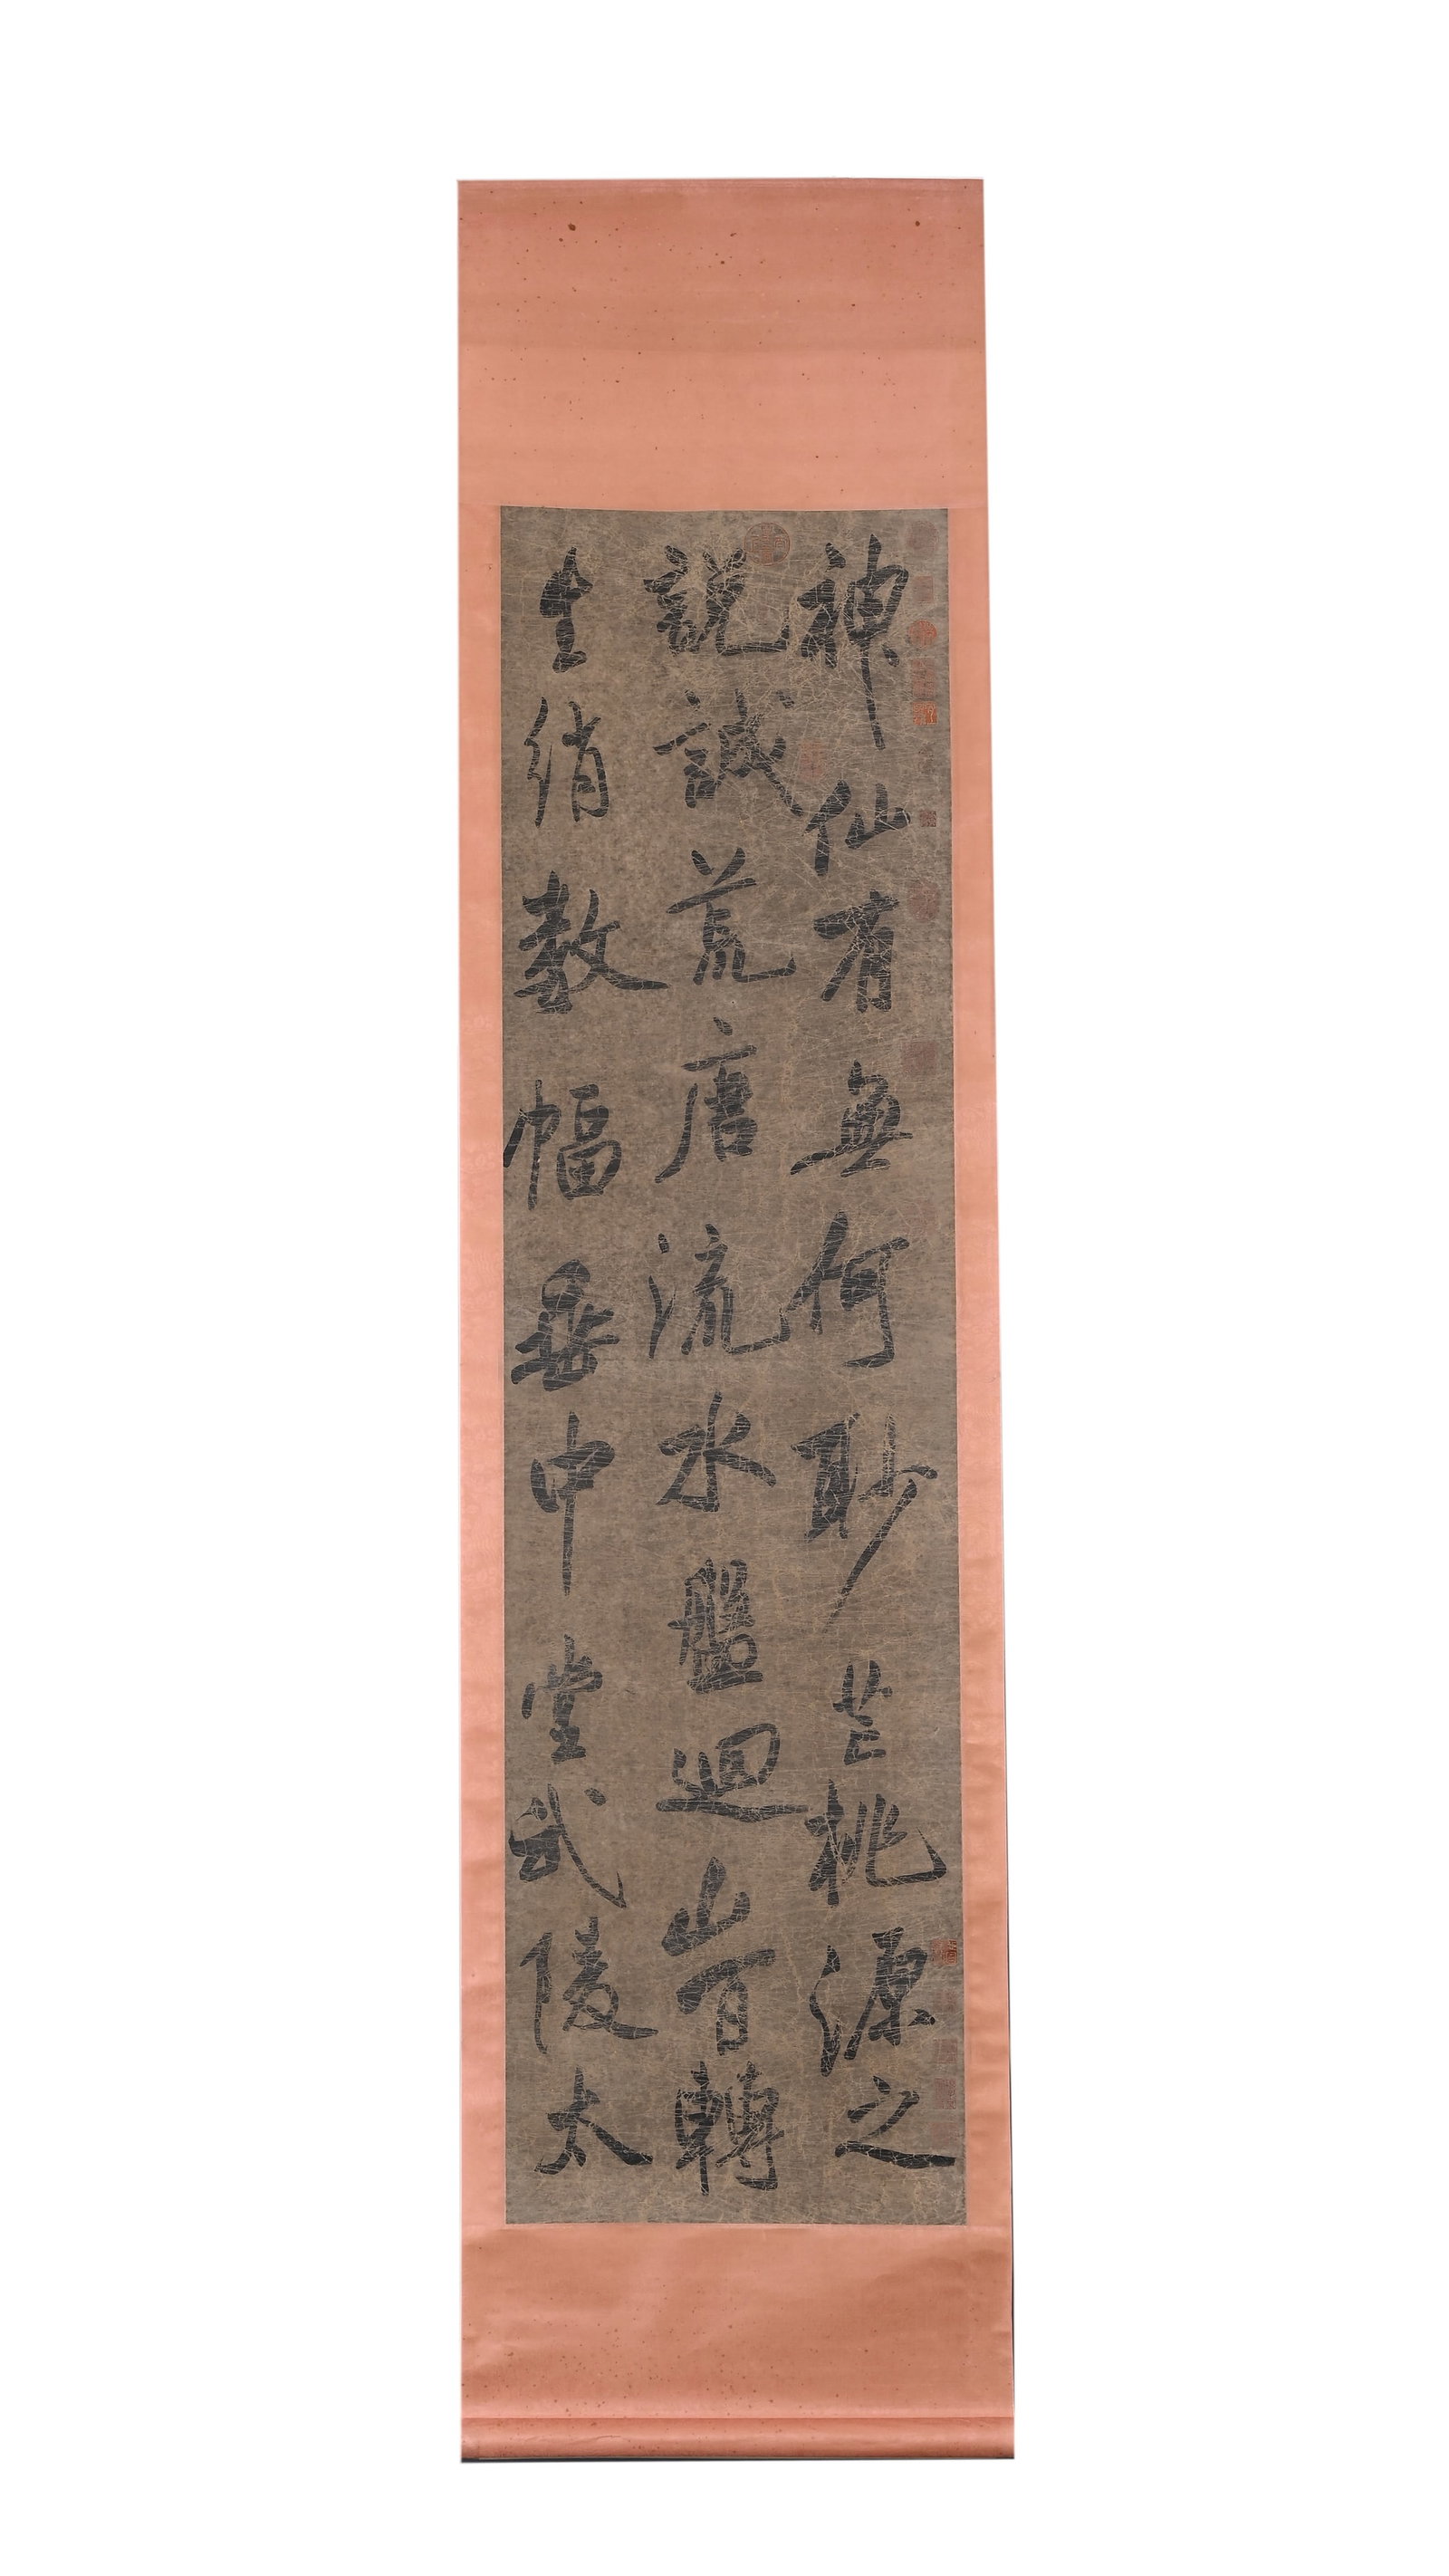 神仙有無何眇芒桃源之
說誠荒唐流水盤迴山百轉
生綃數幅垂中堂武陵太